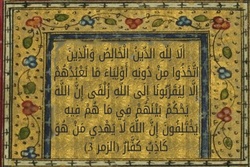 أَلَا لِلَّهِ الدِّينُ الْخَالِصُ وَالَّذِينَ
اتَّخَذُوا مِن دُونِهِ أَوْلِيَاء مَا نَعْبُدُهُمْ
إِلَّا لِيُقَرِّبُونَا إِلَى اللَّهِ زُلْفَى إِنَّ اللَّهَ
يَحْكُمُ بَيْنَهُمْ فِي مَا هُمْ فِيهِ
يَخْتَلِفُونَ إِنَّ اللَّهَ لَا يَهْدِي مَنْ هُوَ
كَاذِبٌ كَفَّارٌ (الزمر 3)